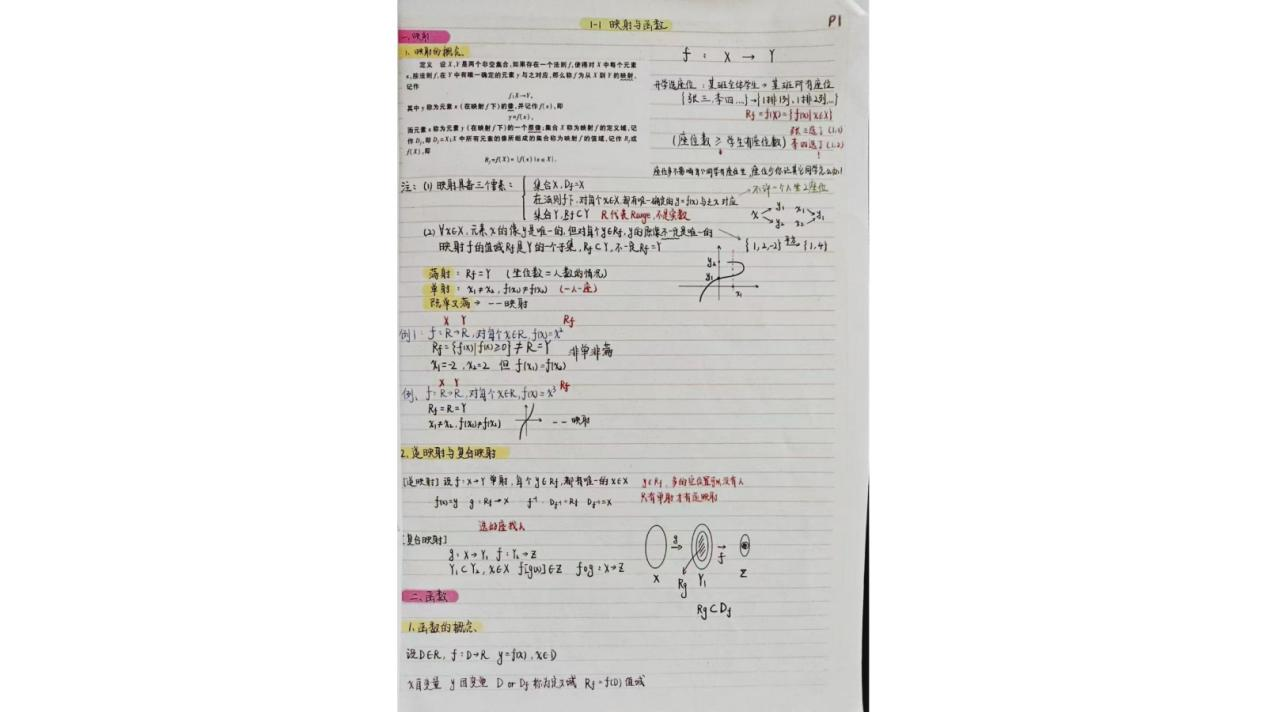 1-1 映射与函数
P1
一、映射
1. 映射的概念
定义 设X,Y是两个非空集合,如果存在一个法则f,使得对X中每个元素
x,按法则f,在Y中有唯一确定的元素y与之对应,那么称f为从X到Y的映射,
记作
f:X→Y,
其中y称为元素x(在映射f下)的像,并记作f(x),即
y=f(x),
而元素x称为元素y(在映射f下)的一个原像;集合X称为映射f的定义域,记
作D_f,即D_f=X;X中所有元素的像所组成的集合称为映射f的值域,记作R_f或
f(X),即
R_f=f(X)={f(x)|x∈X}.
f : X → Y
开学选座位 : 某班全体学生 → 某班所有座位
{张三,李四...}→{1排1列,1排2列...}
Rf=f(X)={f(x)|x∈X}
张三选了(1,1)
(座位数 ≥ 学生有座位数) 李四选了(1,2)
座位多不影响每个同学有座位坐,座位少你让其它同学怎么办!
注: (1) 映射具备三个要素:
集合X, Df=X
在法则f下,对每个x∈X,都有唯一确定的y=f(x)与之对应
集合Y, Rf⊂Y R代表Range,不是实数
不许一个人坐2座位
x y1 y2 x1 x2 y1
(2) ∀x∈X,元素x的像y是唯一的,但对每个y∈Rf,y的原像不一定是唯一的
映射f的值域Rf是Y的一个子集,Rf⊂Y,不一定Rf=Y
{1,2,-2} 平方→ {1,4}
y2
y1
x1
满射: Rf=Y (坐位数=人数的情况)
单射: x1≠x2, f(x1)≠f(x2) (一人一座)
既单又满→一一映射
X Y Rf
例1: f:R→R,对每个x∈R,f(x)=x²
Rf={f(x)|f(x)≥0}≠R=Y 非单非满
x1=-2, x2=2 但 f(x1)=f(x2)
X Y Rf
例、f:R→R,对每个x∈R,f(x)=x³
Rf=R=Y
x1≠x2, f(x1)≠f(x2) 一一映射
2. 逆映射与复合映射
[逆映射] 设f:X→Y单射,每个y∈Rf,都有唯一的x∈X
f(x)=y g:Rf→X f⁻¹ Df⁻¹=Rf Df⁻¹=X
只有单射才有逆映射
选的座找人
[复合映射]
g:X→Y1 f:Y2→Z
Y1⊂Y2, x∈X f[g(x)]∈Z f∘g:X→Z
g f
X Rg Y1 Z
Rg⊂Df
二、函数
1. 函数的概念
设D∈R, f:D→R y=f(x),x∈D
x自变量 y因变量 D or Df 称为定义域 Rf=f(D)值域